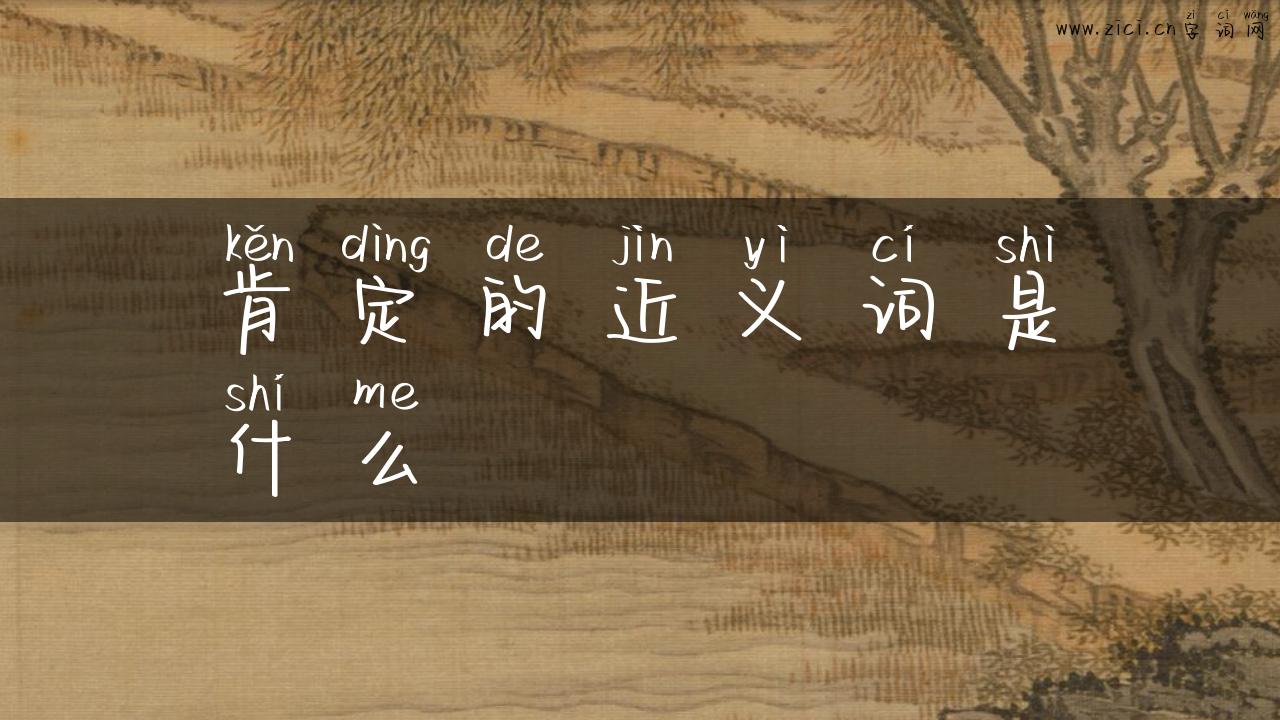 zì cí wǎng
www.zici.cn 字 词 网
kěn dìng de jìn yì cí shì
肯 定 的 近 义 词 是
shí me
什 么